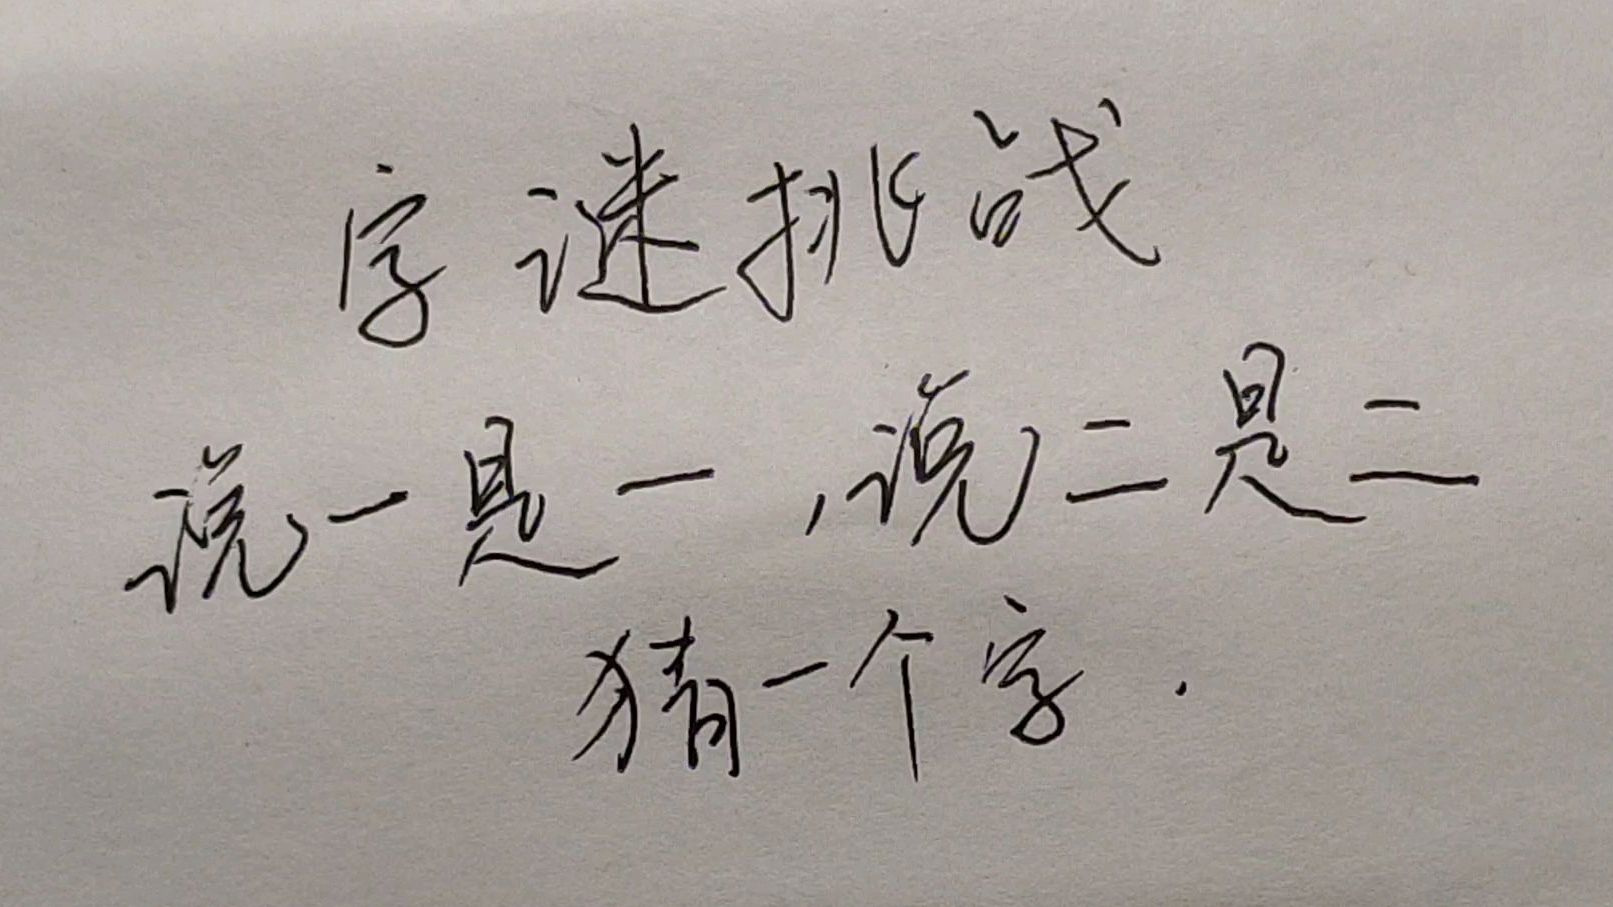 字谜挑战
说一是一,说二是二
猜一个字.